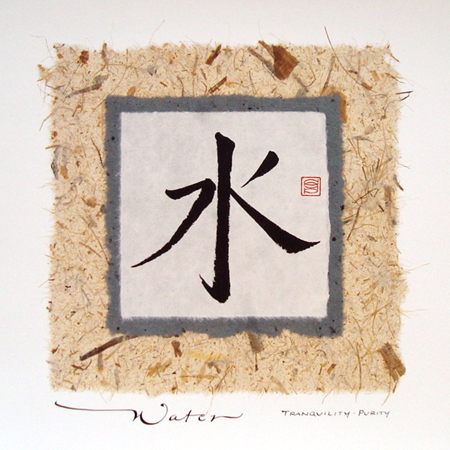 水
Water
TRANQUILITY · PURITY